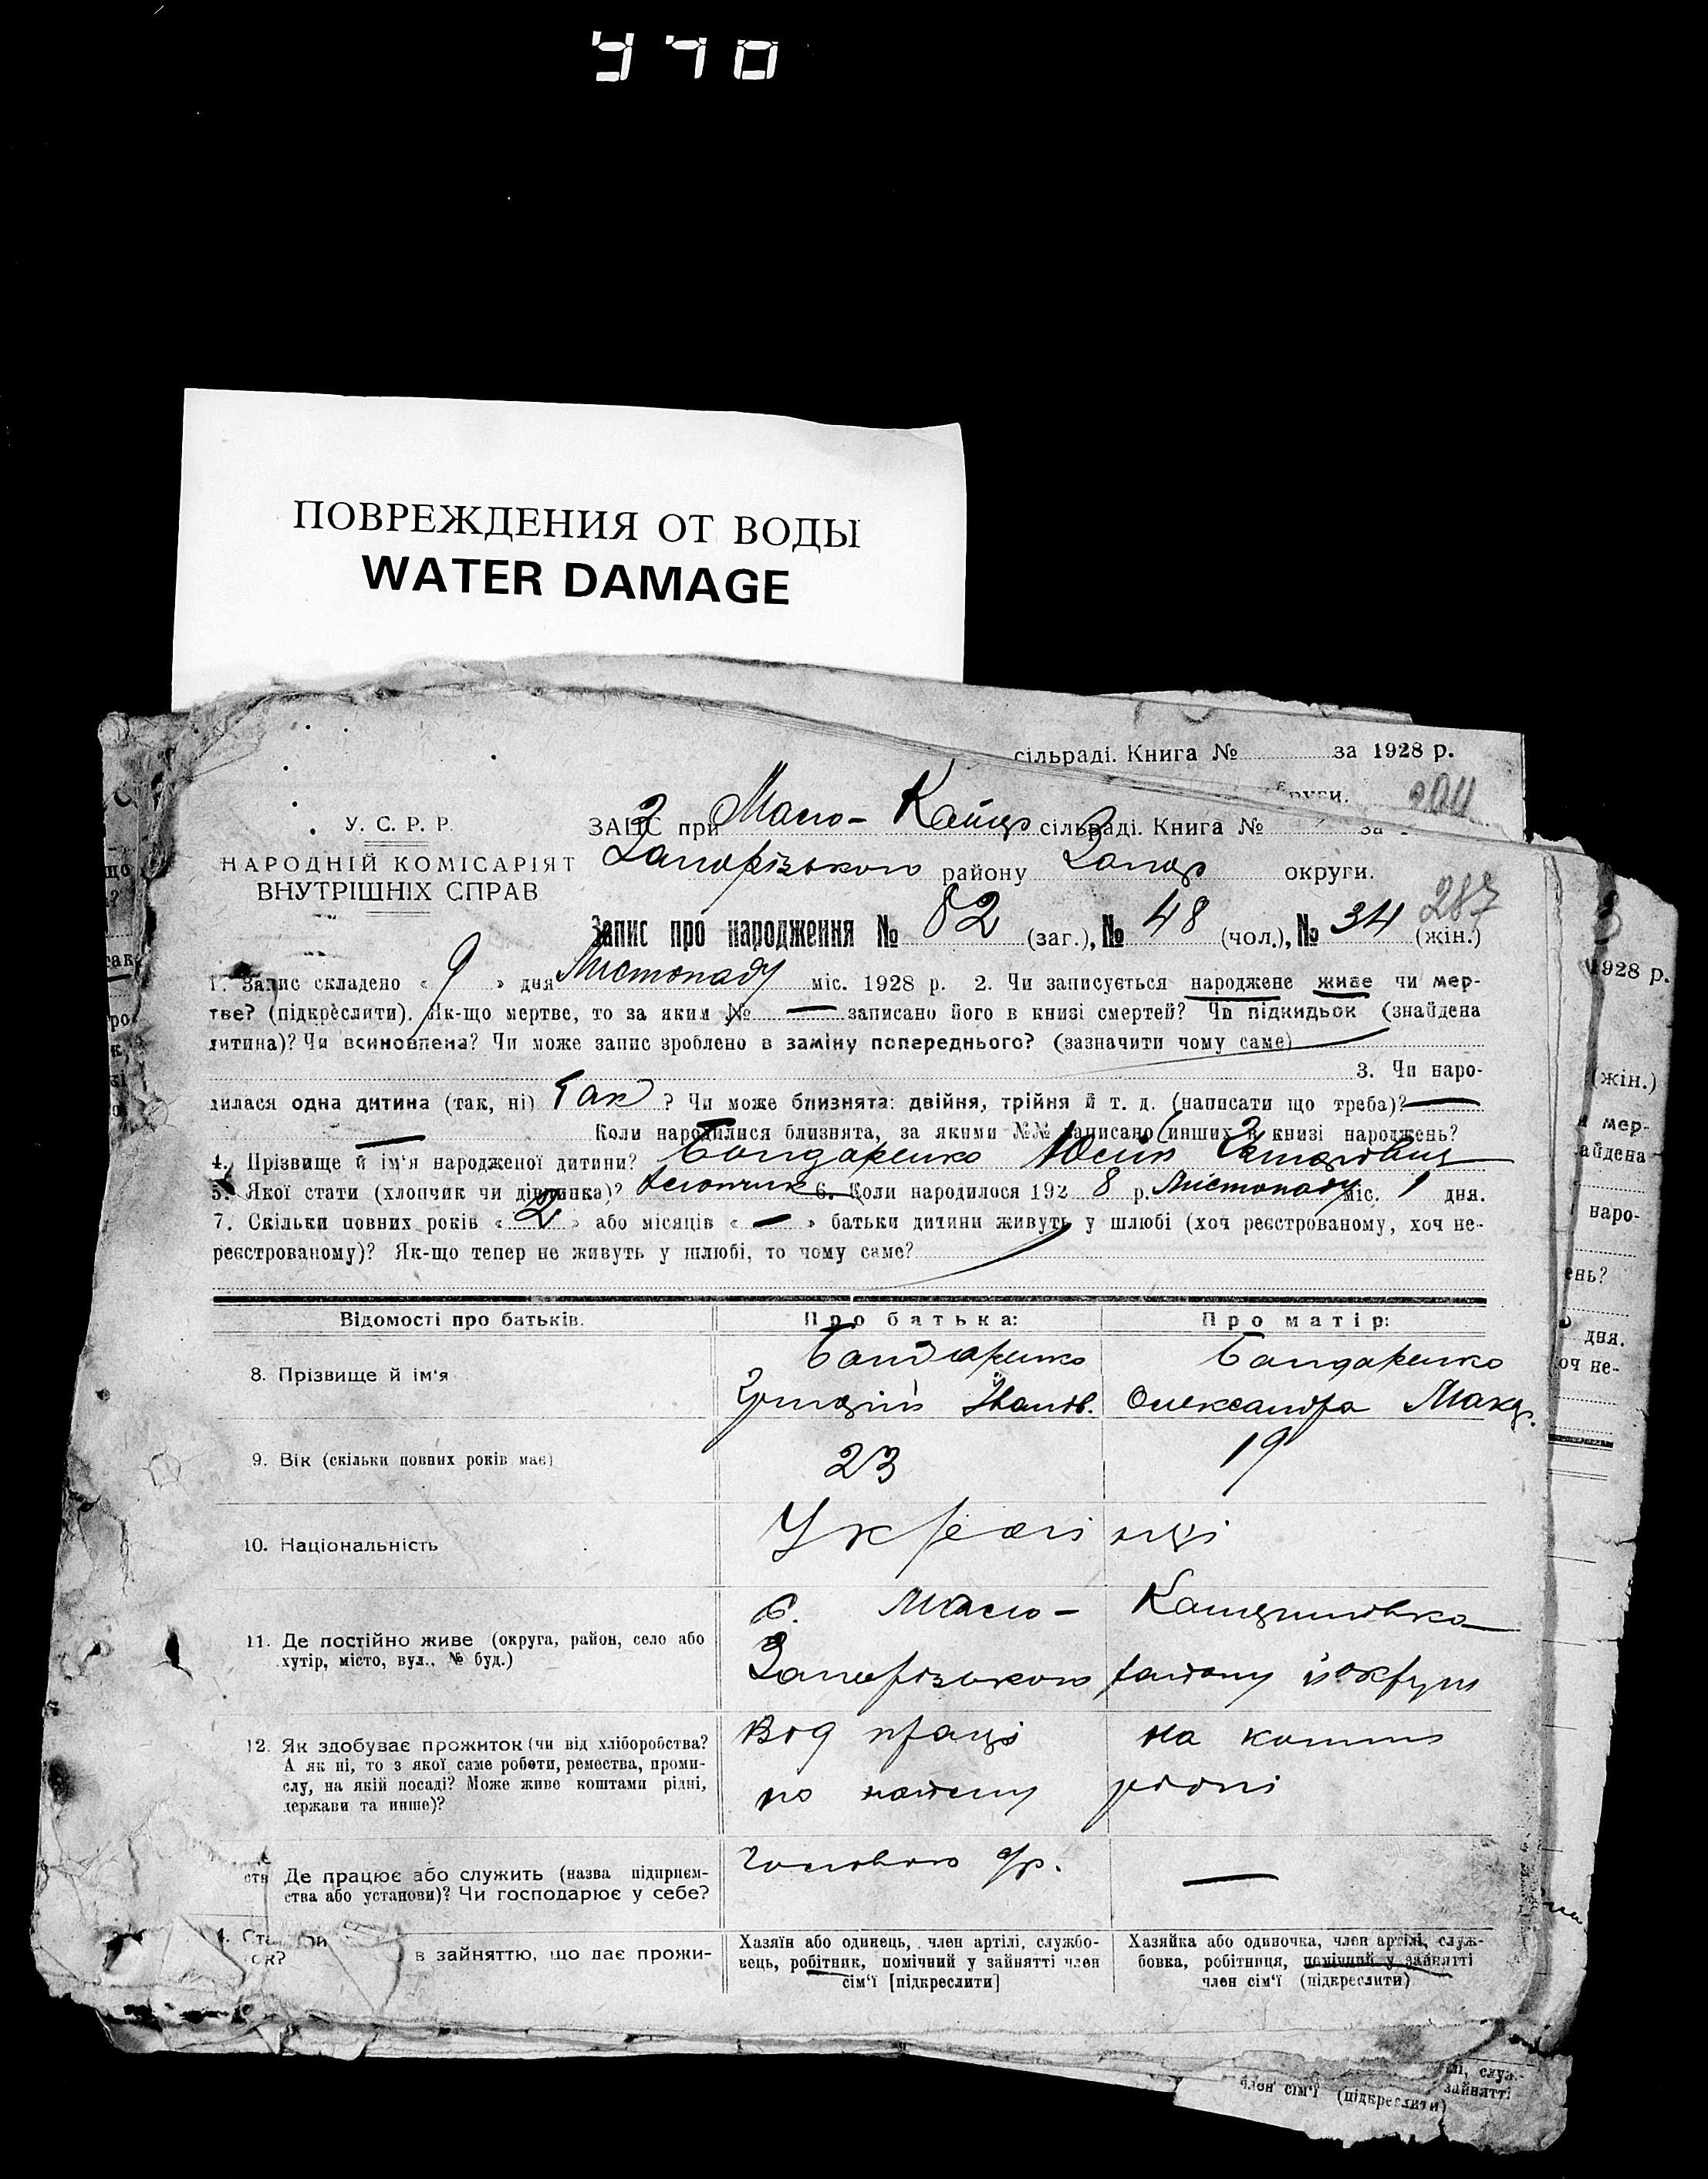 970
ПОВРЕЖДЕНИЯ ОТ ВОДЫ
WATER DAMAGE
сільраді. Книга № за 1928 р.
округи.
У. С. Р. Р.
НАРОДНІЙ КОМІСАРІЯТ
ВНУТРІШНІХ СПРАВ
ЗАГС при Мало- сільраді. Книга № за
Запорізького району Запор округи.
287
Запис про народження № 82 (заг.), № 48 (чол.), № 34 (жін.)
1. Запис складено « 9 » дня Листопаду міс. 1928 р. 2. Чи записується народжене живе чи мер-
тве? (підкреслити). Як-що мертве, то за яким № — записано його в книзі смертей? Чи підкидьок (знайдена
дитина)? Чи всиновлена? Чи може запис зроблено в заміну попереднього? (зазначити чому саме)
3. Чи наро-
дилася одна дитина (так, ні) Так ? Чи може близнята: двійня, трійня й т. д. (написати що треба)? —
— Коли народилися близнята, за якими №№ записано инших в книзі народжень?
4. Прізвище й ім'я народженої дитини? Бондаренко
5. Якої стати (хлопчик чи дівчинка)? Хлопчик 6. Коли народилося 192 8 р. Листопаду міс. 1 дня.
7. Скільки повних років « 2 » або місяців « — » батьки дитини живуть у шлюбі (хоч реєстрованому, хоч не-
реєстрованому)? Як-що тепер не живуть у шлюбі, то чому саме?
Відомості про батьків. Про батька: Про матір:
8. Прізвище й ім'я Бондаренко Бондаренко
Іванов. Олександра Мака.
9. Вік (скільки повних років має) 23 19
10. Національність Українці
11. Де постійно живе (округа, район, село або
хутір, місто, вул., № буд.)
с. Мало-
Запорізького району й округи
12. Як здобуває прожиток (чи від хліборобства?
А як ні, то з якої саме роботи, ремества, проми-
слу, на якій посаді? Може живе коштами рідні,
держави та инше)?
Від праці на кошти
по найму рідні
Де працює або служить (назва підприєм-
ства або установи)? Чи господарює у себе?
—
в зайняттю, що дає прожи-
Хазяїн або одинець, член артілі, службо-
вець, робітник, помічний у зайнятті член
сім'ї [підкреслити]
Хазяйка або одиночка, член артілі, служ-
бовка, робітниця, помічний у зайнятті
член сім'ї (підкреслити)
1928 р.
(жін.)
мер-
айдена
наро-
ень?
дня.
оч не-
зайнятті
член сім'ї (підкреслити)